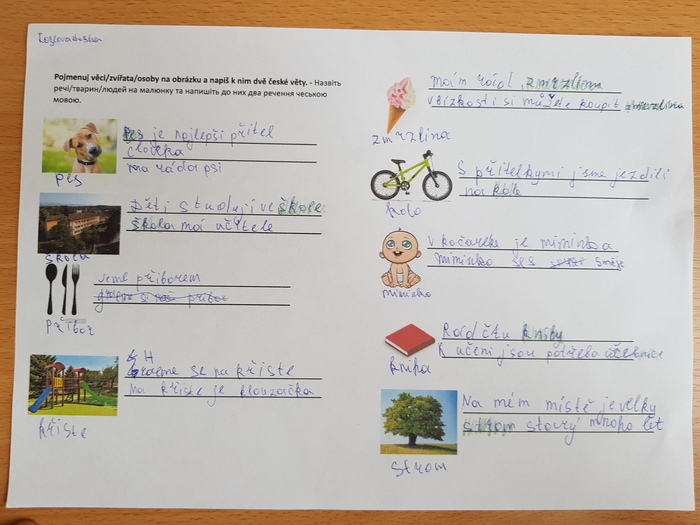 Pojmenuj věci/zvířata/osoby na obrázku a napiš k nim dvě české věty. - Назвіть
речі/тварин/людей на малюнку та напишіть до них два речення чеською
мовою.
Pes je nejlepši přítel
člověka
ma ráda psi
pes
Dětj studují ve škole.
škola má učitele
škola
Jeme příborem
příbor
H
raeme se na křiste
Na křiste je klouzačka
křiste
mám rád zmrzlina
v blízkosti si můžete koupit zmrzlina
zmrzlina
S přítelkymi jsme jezdili
na kole
kolo
V kočarek je miminka
miminko ses směje
miminko
Rád čtu knihy
K učení jsou potřeba učebnice
kniha
Na mém místě je velky
strom starý mnoho let
strom